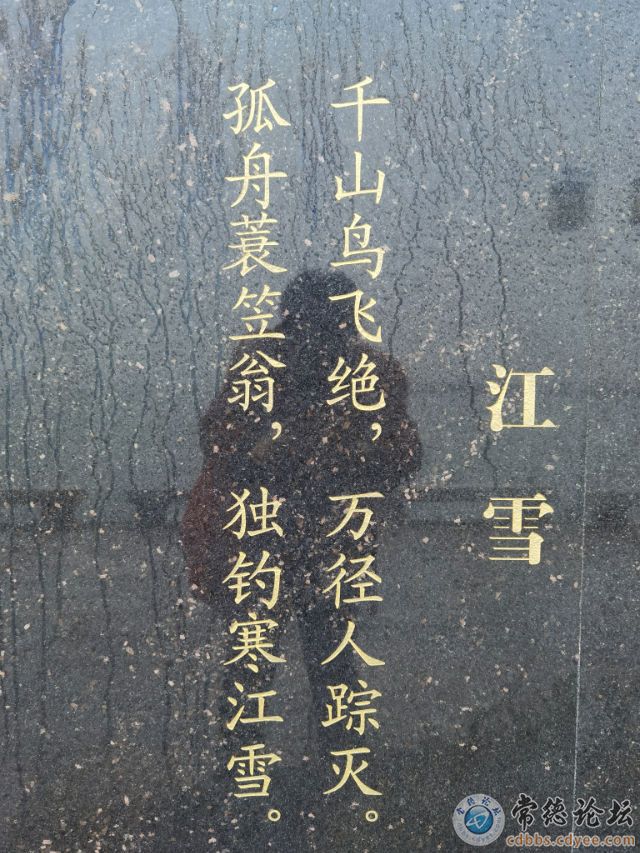 江雪
千山鸟飞绝，万径人踪灭。
孤舟蓑笠翁，独钓寒江雪。
常德论坛
cdbbs.cdyee.com